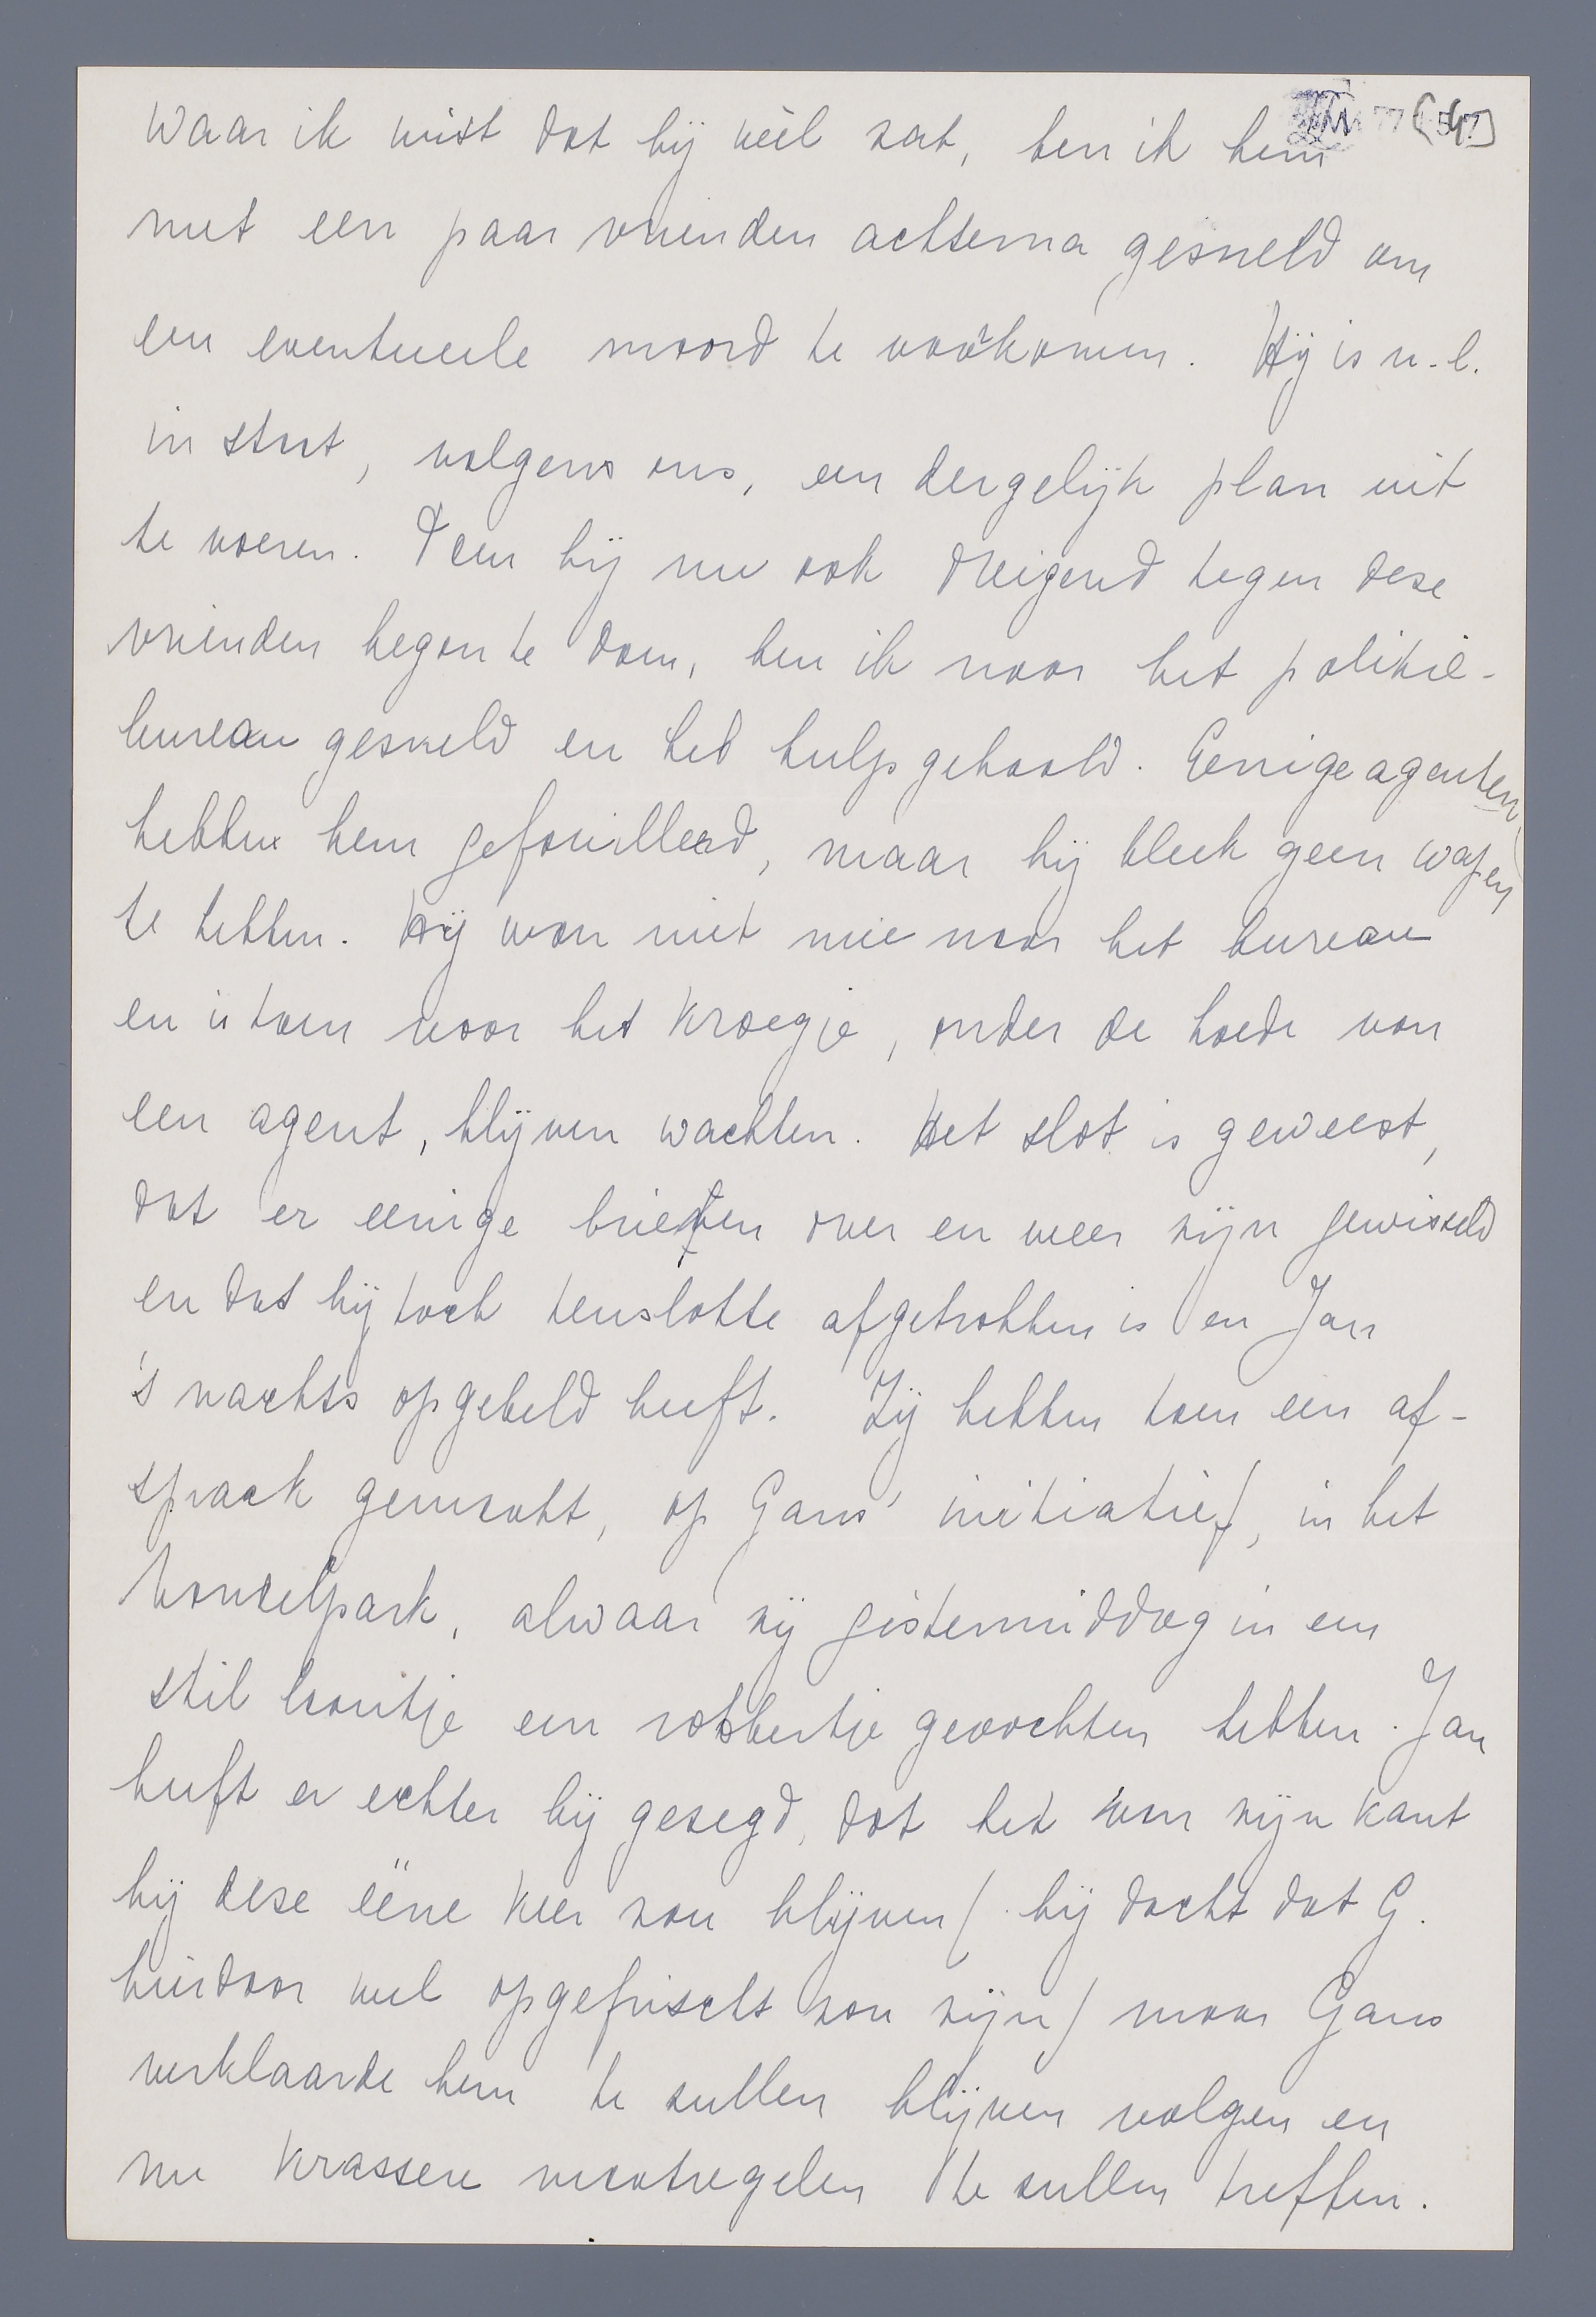 Waar ik wist dat hij wèl zat, ben ik hem
met een paar vrienden achterna gesneld om
een eventueele moord te voorkomen. Hij is n.l.
in staat, volgens ons, een dergelijk plan uit
te voeren. Toen hij nu ook dreigend tegen deze
vrienden begon te doen, ben ik naar het politie-
bureau gesneld en heb hulp gehaald. Eenige agenten
hebben hem gefouilleerd, maar hij bleek geen wapen
te hebben. Hij wou niet mee naar het bureau
en is toen voor het kroegje, onder de hoede van
een agent, blijven wachten. Het slot is geweest,
dat er eenige brieven over en weer zijn gewisseld
en dat hij toch tenslotte afgetrokken is en Jan
's nachts opgebeld heeft. Zij hebben toen een af-
spraak gemaakt, op Gans' initiatief, in het
Vondelpark, alwaar zij gistermiddag in een
stil laantje een robbertje gevochten hebben. Jan
heeft er echter bij gezegd, dat het van zijn kant
bij deze ééne keer zou blijven (hij dacht dat G.
hierdoor wel opgefrischt zou zijn) maar Gans
verklaarde hem te zullen blijven volgen en
nu krassere maatregelen te zullen treffen.